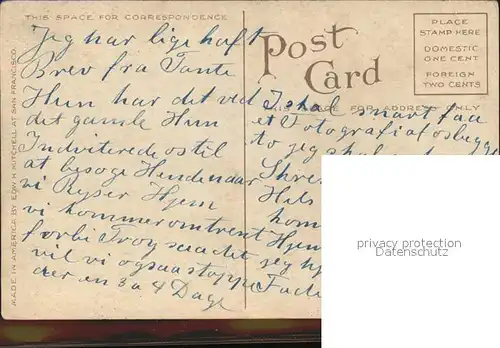 THIS SPACE FOR CORRESPONDENCE
Jeg har lige haft
Brev fra Tante
Hun har det ved
det gamle Hun
Indviterede os til
at besøge Hende naar
vi Rejser Hjem
vi kommer omtrent
forbi Troy saa det
vil vi ogsaa stoppe
der en 3 a 4 Dage
Post
Card
PLACE
STAMP HERE
DOMESTIC
ONE CENT
FOREIGN
TWO CENTS
FOR ADDRESS ONLY
I skal snart faa
et Fotografi af os begge
to jeg skal
Skre
Hils
kom
Hjem
jeg
MADE IN AMERICA BY EDW. H. MITCHELL AT SAN FRANCISCO
privacy protection
Datenschutz